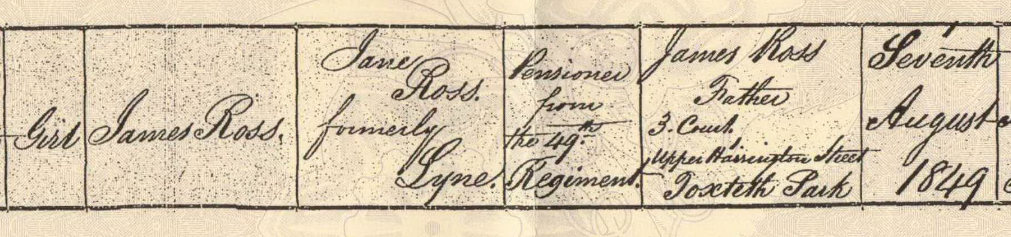 Girl
James Ross.
Jane
Ross.
formerly
Lyne.
Pensioner
from
the 49th
Regiment.
James Ross
Father
3. Court.
Upper Harrington Street
Toxteth Park
Seventh
August
1849